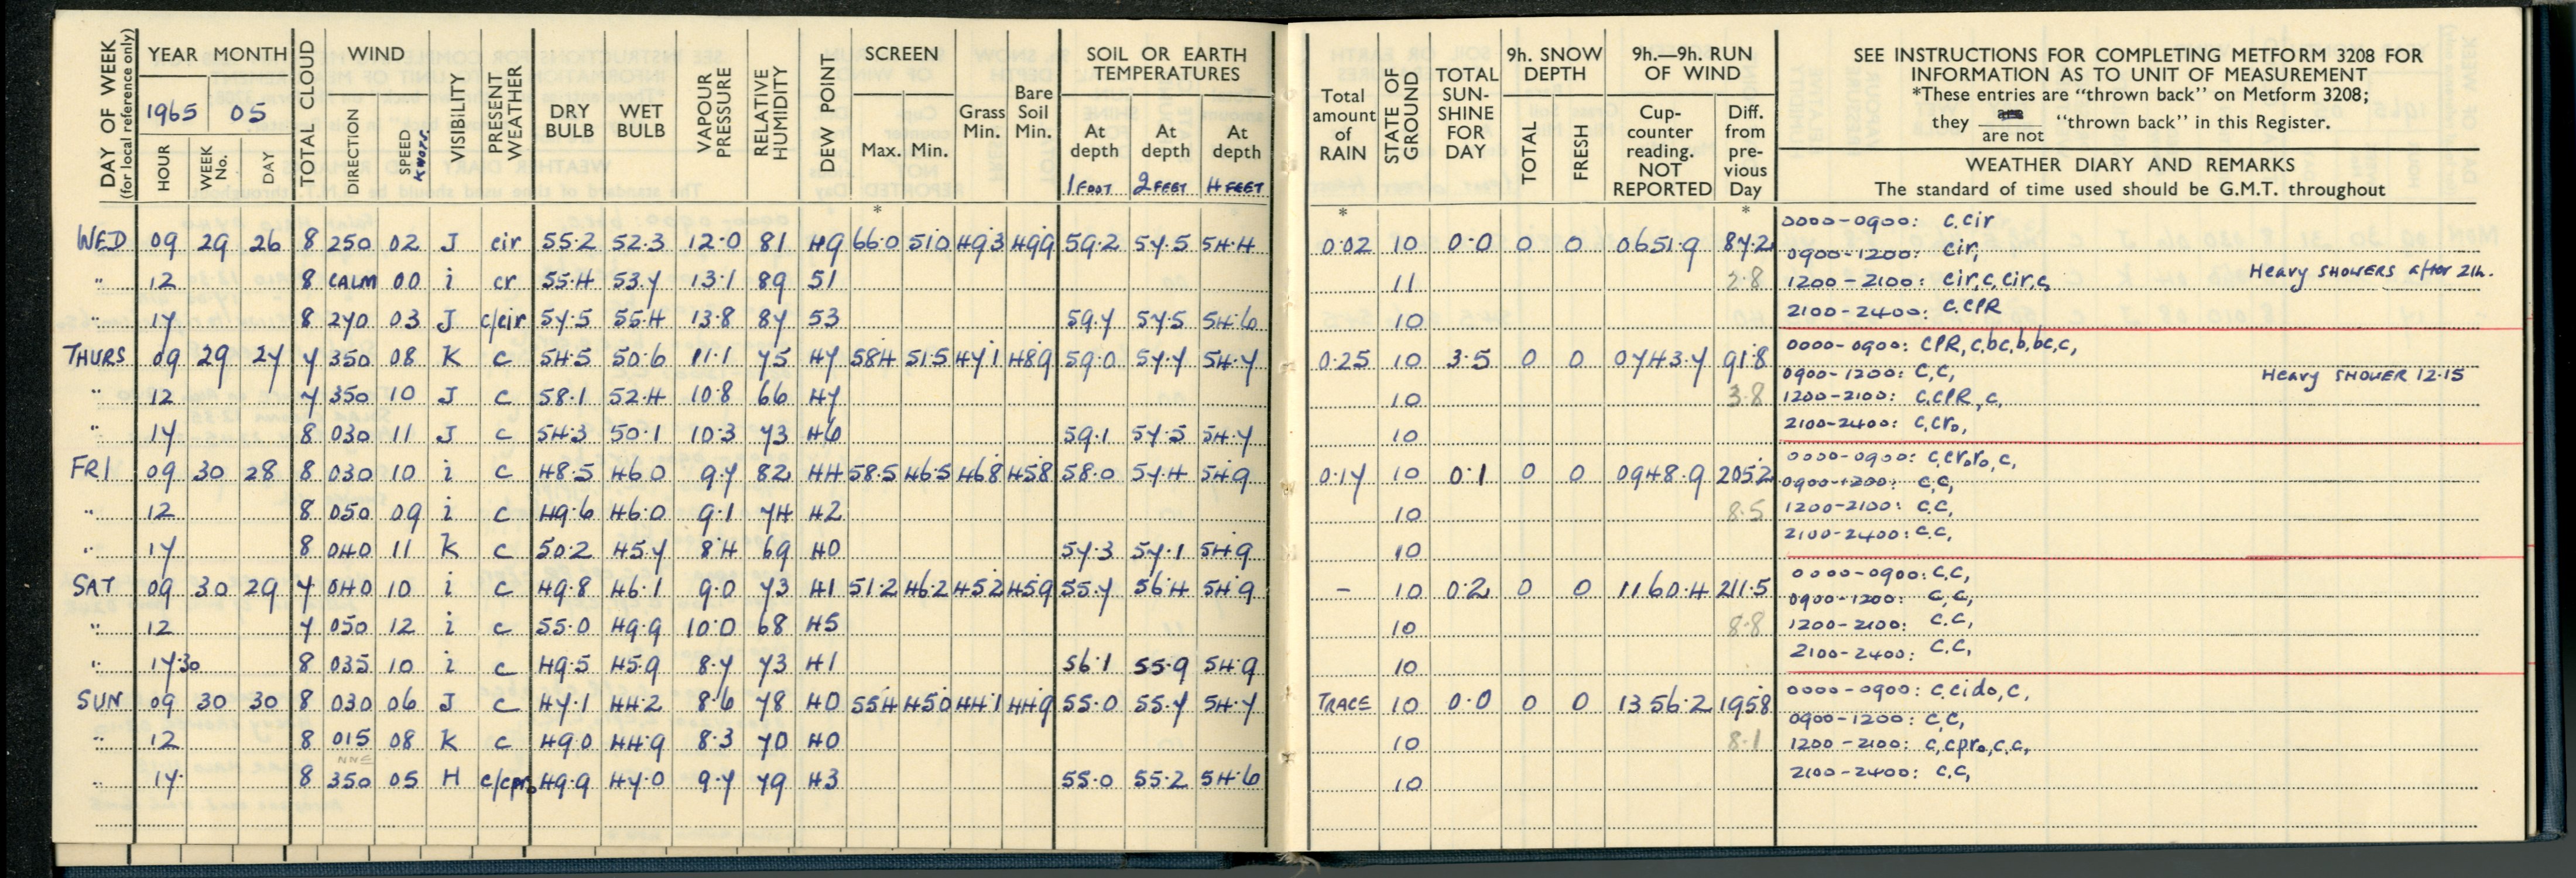 DAY OF WEEK (for local reference only)
YEAR MONTH
1965 05
HOUR WEEK No. DAY
TOTAL CLOUD
WIND
DIRECTION SPEED KNOTS
VISIBILITY
PRESENT WEATHER
DRY BULB
WET BULB
VAPOUR PRESSURE
RELATIVE HUMIDITY
DEW POINT
SCREEN
Max. Min.
Grass Min.
Bare Soil Min.
SOIL OR EARTH TEMPERATURES
At depth 1 FOOT
At depth 2 FEET
At depth 4 FEET
Total amount of RAIN
STATE OF GROUND
TOTAL SUN-SHINE FOR DAY
9h. SNOW DEPTH
TOTAL FRESH
9h.—9h. RUN OF WIND
Cup-counter reading. NOT REPORTED
Diff. from pre-vious Day
SEE INSTRUCTIONS FOR COMPLETING METFORM 3208 FOR
INFORMATION AS TO UNIT OF MEASUREMENT
*These entries are “thrown back” on Metform 3208;
they are / are not “thrown back” in this Register.
WEATHER DIARY AND REMARKS
The standard of time used should be G.M.T. throughout
* * *
WED 09 29 26 8 250 02 J cir 55.2 52.3 12.0 81 49 66.0 51.0 49.3 49.9 59.2 57.5 54.4 0.02 10 0.0 0 0 0651.9 87.2
0000-0900: c.cir
0900-1200: cir,
" 12 8 CALM 00 i cr 55.4 53.7 13.1 89 51 11 2.8
1200-2100: cir,c,cir,c Heavy SHOWERS after 21h.
" 17 8 270 03 J c/cir 57.5 55.4 13.8 87 53 59.7 57.5 54.6 10
2100-2400: c.cPR
THURS 09 29 27 7 350 08 K c 54.5 50.6 11.1 75 47 58.4 51.5 47.1 48.9 59.0 57.7 54.7 0.25 10 3.5 0 0 0743.7 91.8
0000-0900: cPR,c,bc,b,bc,c,
0900-1200: c,c,
Heavy SHOWER 12.15
" 12 7 350 10 J c 58.1 52.4 10.8 66 47 10 3.8
1200-2100: c,cPR,c,
" 17 8 030 11 J c 54.3 50.1 10.3 73 46 59.1 57.5 54.7 10
2100-2400: c,cro,
FRI 09 30 28 8 030 10 i c 48.5 46.0 9.7 82 44 58.5 46.5 46.8 45.8 58.0 57.4 54.9 0.17 10 0.1 0 0 0948.9 205.2
0000-0900: c,croro,c,
0900-1200: c,c,
" 12 8 050 09 i c 49.6 46.0 9.1 74 42 10 8.5
1200-2100: c,c,
" 17 8 040 11 K c 50.2 45.7 8.4 69 40 57.3 57.1 54.9 10
2100-2400: c.c,
SAT 09 30 29 7 040 10 i c 49.8 46.1 9.0 73 41 51.2 46.2 45.2 45.9 55.7 56.4 54.9 - 10 0.2 0 0 1160.4 211.5
0000-0900: c.c,
0900-1200: c,c,
" 12 7 050 12 i c 55.0 49.9 10.0 68 45 10 8.8
1200-2100: c.c,
" 17.30 8 035 10 i c 49.5 45.9 8.7 73 41 56.1 55.9 54.9 10
2100-2400: c.c,
SUN 09 30 30 8 030 06 J c 47.1 44.2 8.6 78 40 55.4 45.0 44.1 44.9 55.0 55.7 54.7 TRACE 10 0.0 0 0 1356.2 195.8
0000-0900: c,cido,c,
0900-1200: c,c,
" 12 8 015 08 K c 49.0 44.9 8.3 70 40 10 8.1
NNE
1200-2100: c,cpro,c.c,
" 17. 8 350 05 H c/cpro 49.9 47.0 9.7 79 43 55.0 55.2 54.6 10
2100-2400: c.c,